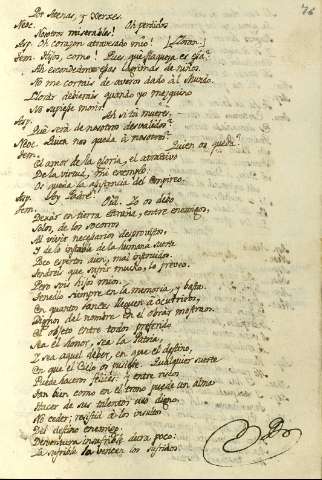 76
Por Atenas, y Xerxes.
Neoc. Nosotros miserables! Oh perdidos
Asp. Oh corazon atravesado mio! (Lloran.)
Tem. Hijos, como! Pues, que flaqueza es esa?
Ah escondedme esas lagrimas de niños
No me corrais de averos dado al Mundo.
Llorar debierais quando yo mezquino
No supiese morir.
Asp. Ah si tu mueres,
Que será de nosotros desvalidos?
Neoc. Quien nos queda á nosotros?
Tem. Quien os queda?
El amor de la gloria, el atractivo
De la virtud, mi exemplo.
Os queda la asistencia del Empireo.
Asp. Ay Padre!
Tem. Oid. Yo os dexo
en tierra estraña, entre enemigos,
Solos, de los socorros
Al vivir necesarios desproveidos,
Y de lo instable de la humana suerte
Poco expertos aun, mal instruidos.
Tendreis que sufrir mucho, lo preveo.
Pero sois hijos mios.
Tenedlo siempre en la memoria, y basta.
En quantos lances lleguen á ocurriros,
Dignos del nombre en el obrar mostraos.
El objeto entre todos preferido
Sea el honor, sea la Patria,
Y sea aquel deber, en que el destino,
En que el Cielo os pusiese. Qualquier suerte
Puede haceros felices: y entre
tan bien como en el trono puede un alma
Hacer de sus talentos uso digno.
No ceder; resistid á los insultos
Del destino enemigo.
Desventura insufrible dura poco:
La sufrible la vencen los sufridos